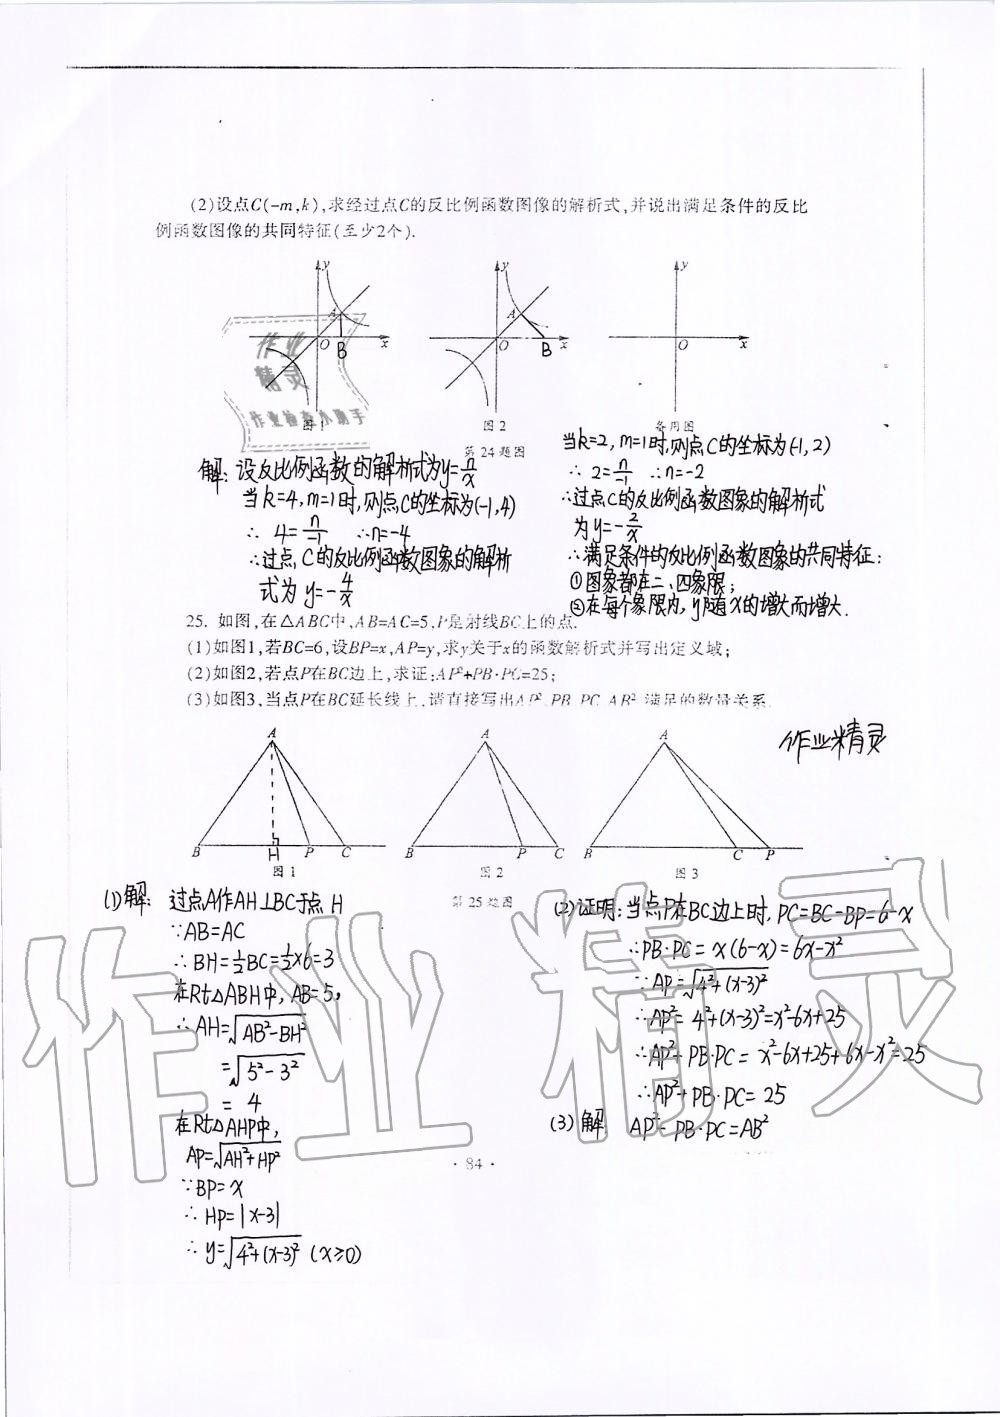 (2)设点C(-m,k),求经过点C的反比例函数图像的解析式,并说出满足条件的反比
例函数图像的共同特征(至少2个).
y
A
O
B
x
图1
y
A
O
B
x
图2
y
O
x
备用图
第24题图
解:设反比例函数的解析式为y=n/x
当k=4,m=1时,则点C的坐标为(-1,4)
∴ 4=n/-1 ∴n=-4
∴过点C的反比例函数图象的解析
式为 y=-4/x
当k=2,m=1时,则点C的坐标为(-1,2)
∴ 2=n/-1 ∴n=-2
∴过点C的反比例函数图象的解析式
为y=-2/x
∴满足条件的反比例函数图象的共同特征:
①图象都在二、四象限;
②在每个象限内,y随x的增大而增大.
25. 如图,在△ABC中,AB=AC=5,P是射线BC上的点.
(1)如图1,若BC=6,设BP=x,AP=y,求y关于x的函数解析式并写出定义域;
(2)如图2,若点P在BC边上,求证:AP²+PB·PC=25;
(3)如图3,当点P在BC延长线上,请直接写出AP²,PB,PC,AB²满足的数量关系.
作业精灵
A
B
H
P
C
图1
A
B
P
C
图2
A
B
C
P
图3
第25题图
(1)解: 过点A作AH⊥BC于点H
∵AB=AC
∴BH=½BC=½×6=3
在Rt△ABH中,AB=5,
∴AH=√(AB²-BH²)
=√(5²-3²)
= 4
在Rt△AHP中,
AP=√(AH²+HP²)
∵BP=x
∴HP=|x-3|
∴ y=√(4²+(x-3)²) (x≥0)
(2)证明:当点P在BC边上时,PC=BC-BP=6-x
∴PB·PC=x(6-x)=6x-x²
∵AP=√(4²+(x-3)²)
∴AP²=4²+(x-3)²=x²-6x+25
∴AP²+PB·PC=x²-6x+25+6x-x²=25
∴AP²+PB·PC=25
(3)解 AP²-PB·PC=AB²
·84·
作业精灵
作业精灵
作业检查小助手